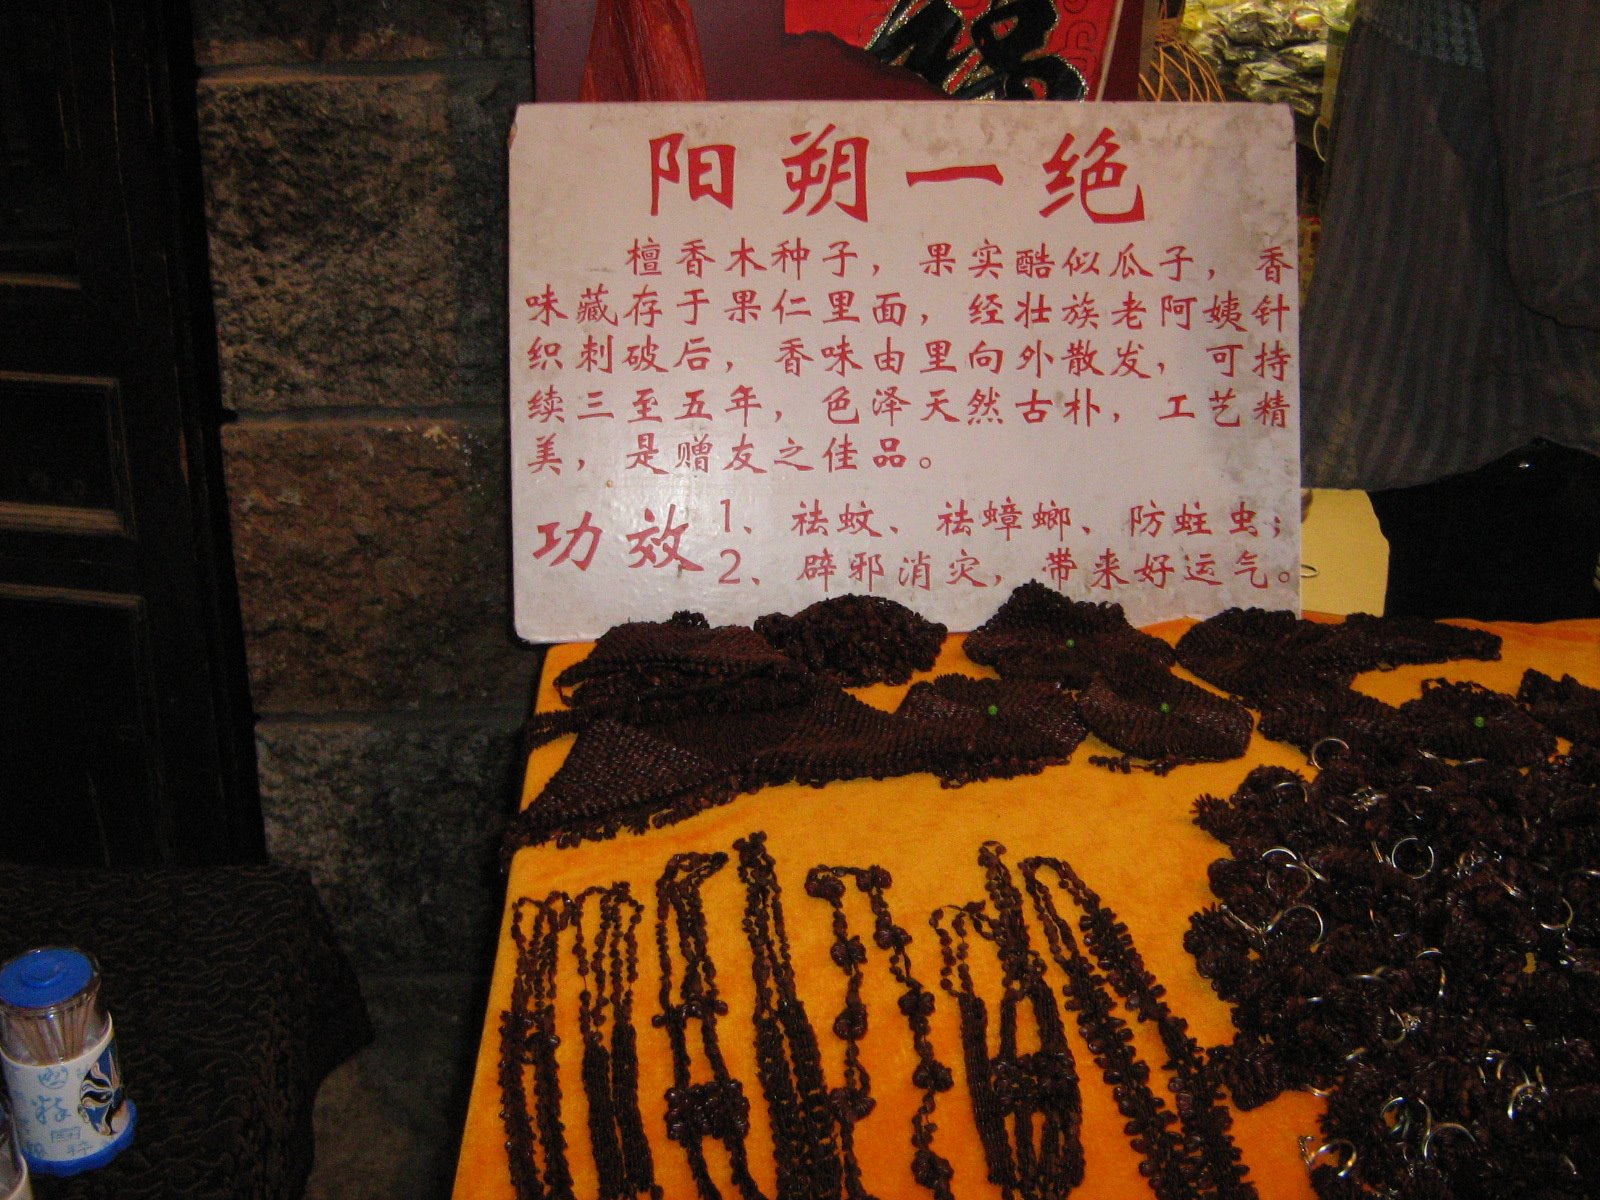 阳朔一绝
檀香木种子，果实酷似瓜子，香
味藏存于果仁里面，经壮族老阿姨针
织刺破后，香味由里向外散发，可持
续三至五年，色泽天然古朴，工艺精
美，是赠友之佳品。
功效
1、祛蚊、祛蟑螂、防蛀虫；
2、辟邪消灾，带来好运气。